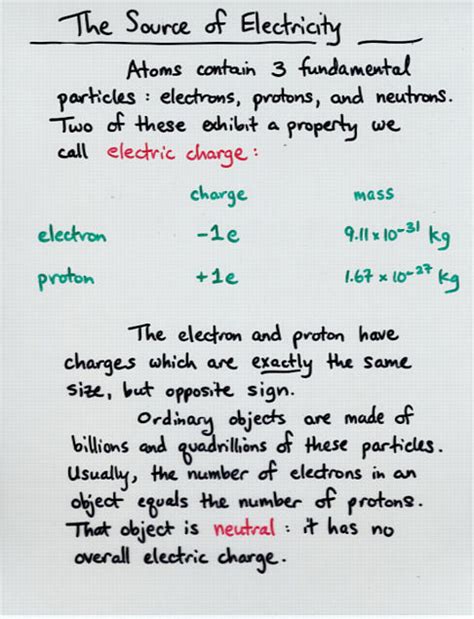 The Source of Electricity
Atoms contain 3 fundamental
particles : electrons, protons, and neutrons.
Two of these exhibit a property we
call electric charge :
charge mass
electron -1e 9.11 x 10^-31 kg
proton +1e 1.67 x 10^-27 kg
The electron and proton have
charges which are exactly the same
size, but opposite sign.
Ordinary objects are made of
billions and quadrillions of these particles.
Usually, the number of electrons in an
object equals the number of protons.
That object is neutral : it has no
overall electric charge.